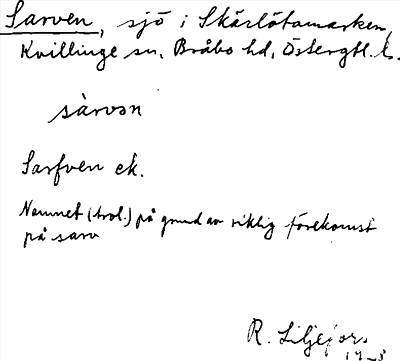 Sarven, sjö i Skärlötamarken,
Kvillinge sn. Bråbo hd, Östergtl. l.
sàrvən
Sarfven ek.
Namnet (trol.) på grund av riklig förekomst
på sarv
R. Liljefors